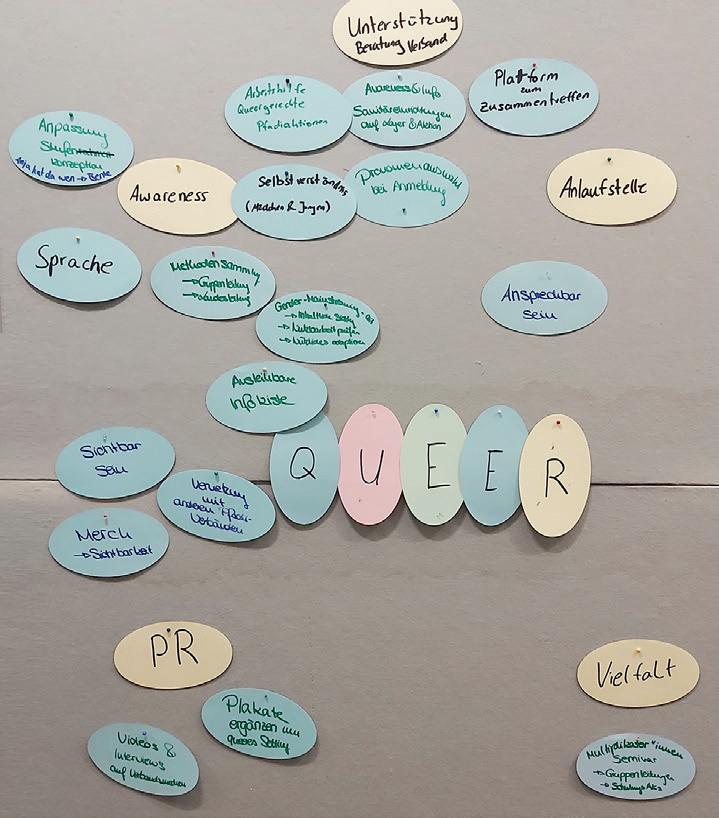 Unterstützung
Beratung Verband
Arbeitshilfe
Queergerechte
Pfadiaktionen
Awareness & Info
Sanitäreinrichtungen
auf Lager & Aktion
Plattform
zum
Zusammentreffen
Anpassung
Stufen
konzeption
Awareness
Selbstverständnis
(Mädchen & Jungen)
Pronomenauswahl
bei Anmeldung
Anlaufstelle
Sprache
Methodensammlg
→ Gruppenleitung
→ Landesleitung
Gender-Mainstreaming
→ Nutzbarkeit prüfen
→ Nützliches adaptieren
Ansprechbar
sein
Ausleihbare
Infokiste
Sichtbar
sein
Vernetzung
mit
anderen Pfadi-
Verbänden
QUEER
Merch
→ Sichtbarkeit
PR
Plakate
ergänzen um
queeres Setting
Videos &
Interviews
auf Verbandsmedien
Vielfalt
Multiplikator*innen
Seminar
→ Gruppenleitungen
→ Schulungs AKs